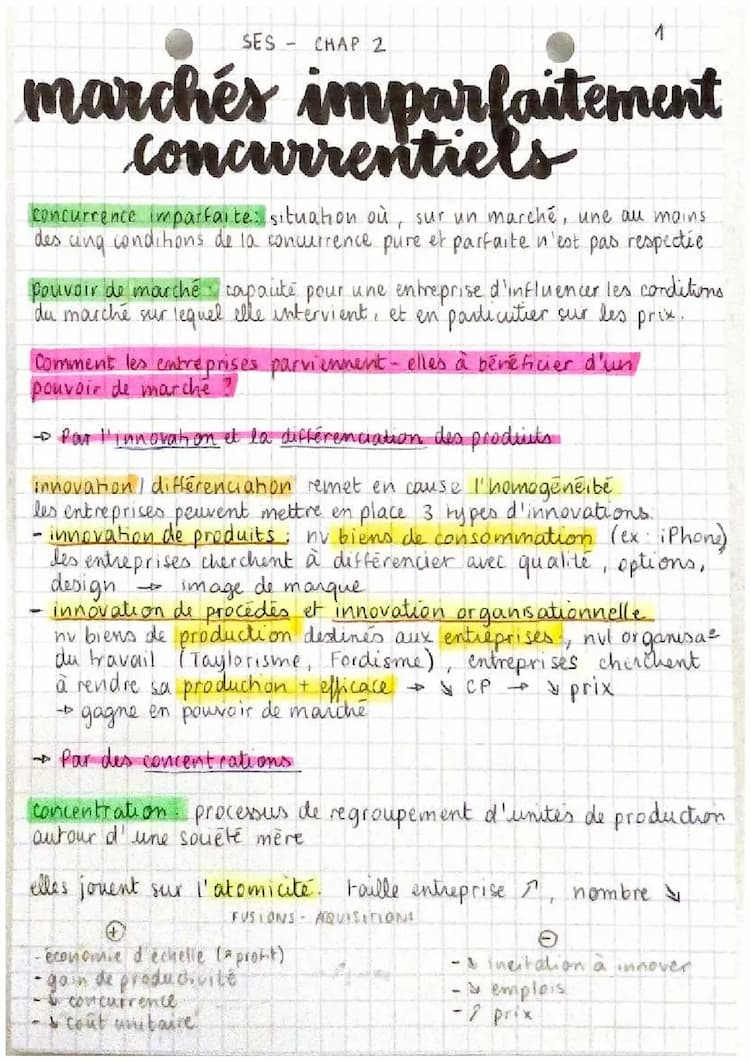 SES - CHAP 2
1
marchés imparfaitement
concurrentiels
concurrence imparfaite: situation où, sur un marché, une au moins
des cinq conditions de la concurrence pure et parfaite n'est pas respectée
pouvoir de marché: capacité pour une entreprise d'influencer les conditions
du marché sur lequel elle intervient, et en particulier sur les prix.
Comment les entreprises parviennent-elles à bénéficier d'un
pouvoir de marché ?
→ Par l'innovation et la différenciation des produits
innovation / différenciation remet en cause l'homogénéité
les entreprises peuvent mettre en place 3 types d'innovations.
- innovation de produits : nv biens de consommation (ex: iPhone)
les entreprises cherchent à différencier avec qualité, options,
design → image de marque
- innovation de procédés et innovation organisationnelle
nv biens de production destinés aux entreprises, nvl organisa°
du travail (Taylorisme, Fordisme), entreprises cherchent
à rendre sa production + efficace → ↘ CP → ↘ prix
→ gagne en pouvoir de marché
→ Par des concentrations
concentration: processus de regroupement d'unités de production
autour d'une société mère
elles jouent sur l'atomicité. taille entreprise ↗, nombre ↘
FUSIONS - ACQUISITIONS
+
- économie d'échelle (= profit)
- gain de productivité
- ↘ concurrence
- ↘ coût unitaire
-
- ↘ incitation à innover
- ↘ emplois
- ↗ prix